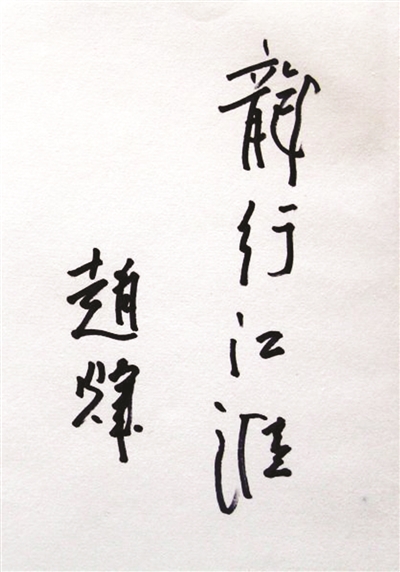 龍行江淮
趙煒